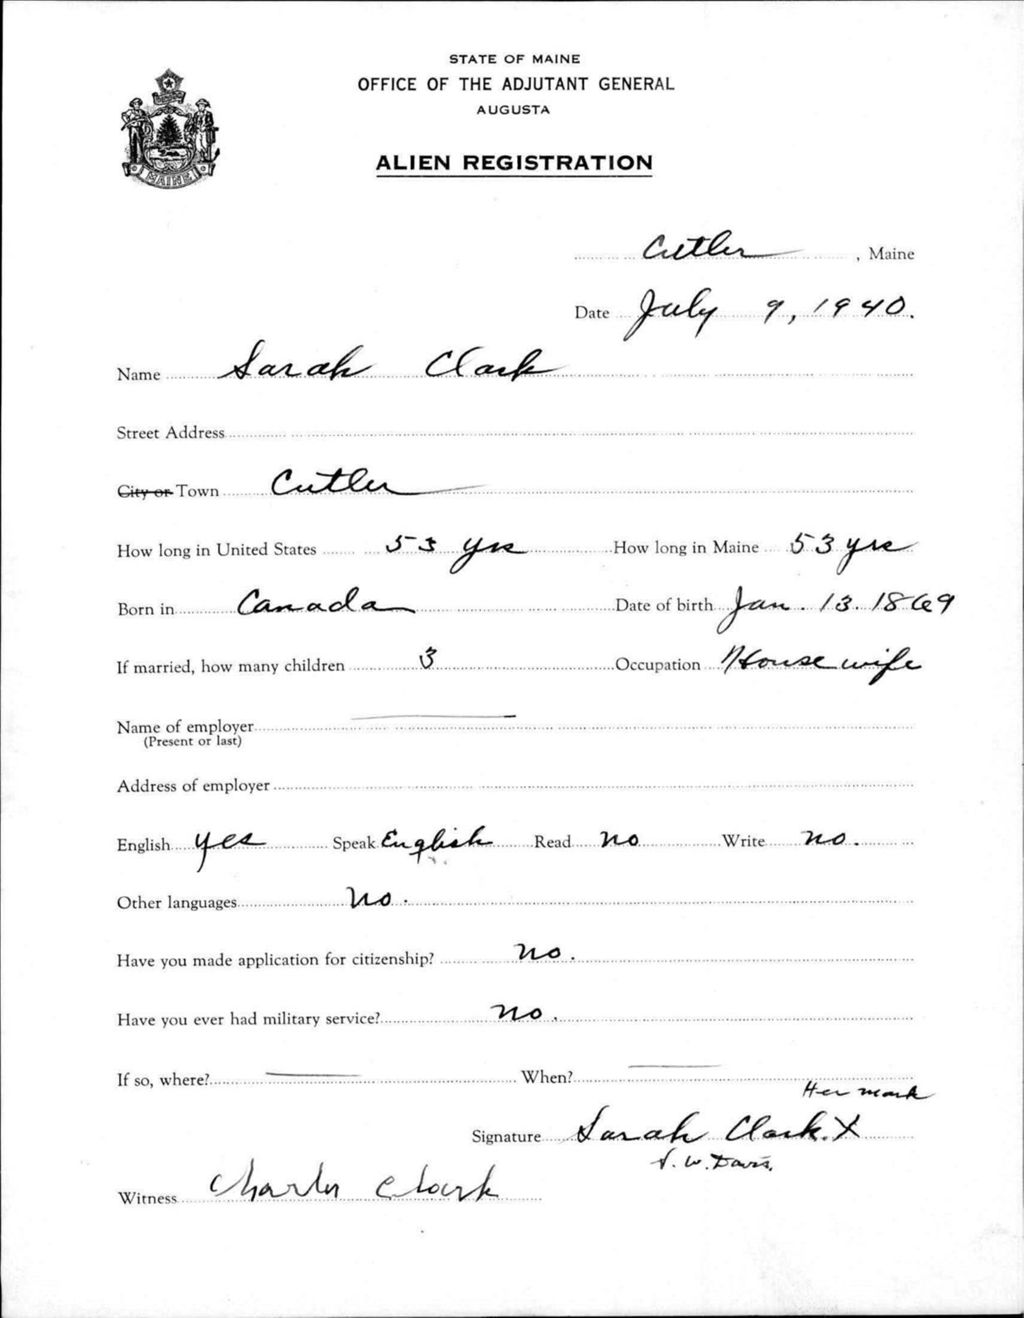 STATE OF MAINE
OFFICE OF THE ADJUTANT GENERAL
AUGUSTA
ALIEN REGISTRATION
MAINE
Cutler, Maine
Date July 9, 1940.
Name Sarah Clark
Street Address
City or Town Cutler
How long in United States 53 yrs How long in Maine 53 yrs
Born in Canada Date of birth Jan. 13. 1869
If married, how many children 3 Occupation Housewife
Name of employer
(Present or last)
Address of employer
English yes Speak English Read no Write no.
Other languages no.
Have you made application for citizenship? no.
Have you ever had military service? no.
If so, where? When?
Her mark
Signature Sarah Clark. X
W. Davis.
Witness Charles Clark